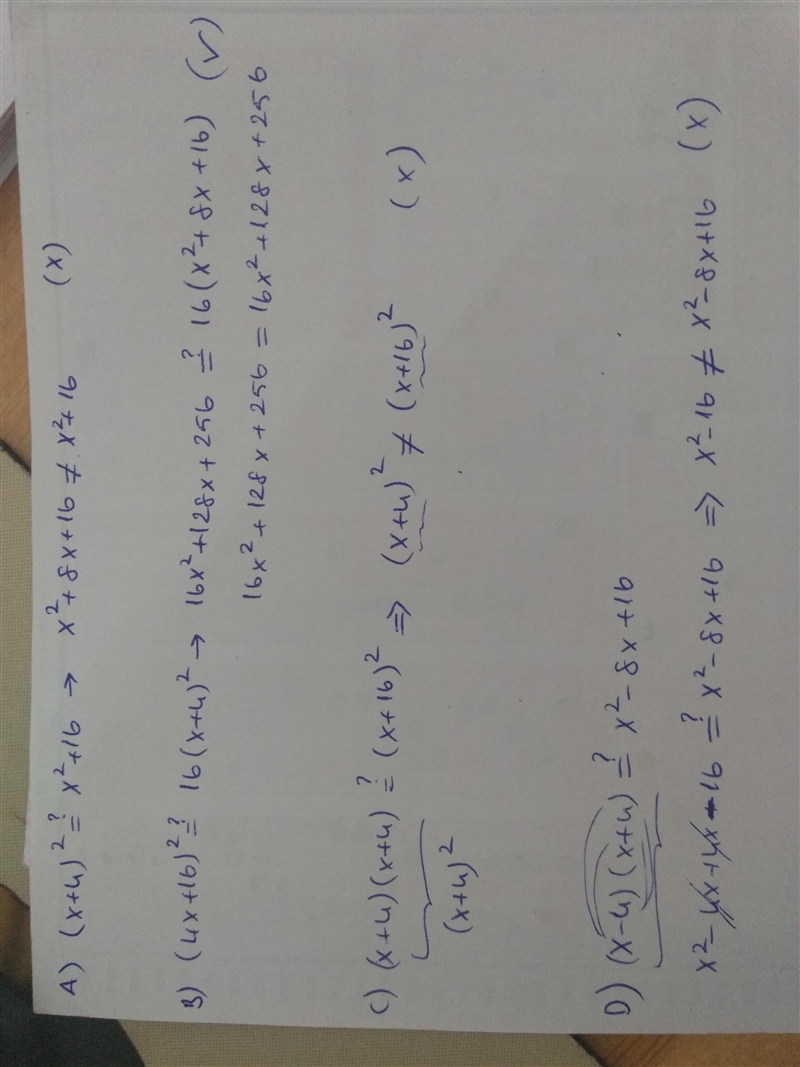 A) (x+4)² ≟ x²+16 → x²+8x+16 ≠ x²+16 (x)
B) (4x+16)² ≟ 16(x+4)² → 16x²+128x+256 ≟ 16(x²+8x+16) (√)
16x²+128x+256 = 16x²+128x+256
C) (x+4)(x+4) ≟ (x+16)² ⇒ (x+4)² ≠ (x+16)² (x)
(x+4)²
D) (x-4)(x+4) ≟ x²-8x+16
x²-4x+4x-16 ≟ x²-8x+16 ⇒ x²-16 ≠ x²-8x+16 (x)